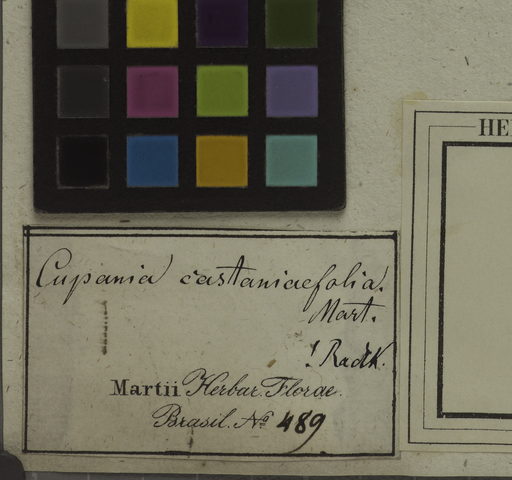 HE
Cupania castaniaefolia.
Mart.
! Radlk.
Martii Herbar. Florae.
Brasil. No 489